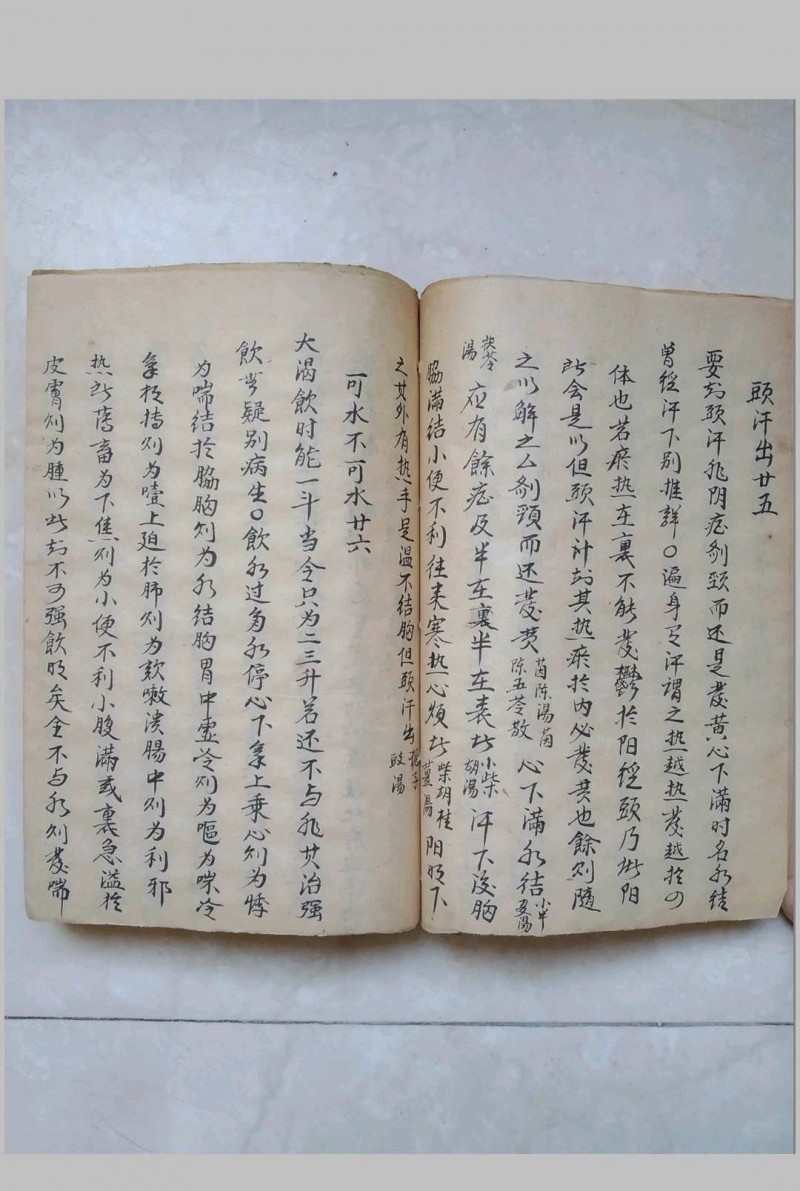 頭汗出廿五
要知頭汗非阴症剂頸而还是發黄心下滿时名水结
曾経汗下别推詳〇遍身有汗謂之热越热發越於外
体也若瘀热在裏不能發鬱於阳経頭乃此阳
所会是以但頭汗計知其热瘀於内必發黄也餘则隨
之以解之么剂頸而还發黄
茵陈湯茵
陈五苓散
心下滿水结
小半
夏湯
茯苓
湯
应有餘症及半在裏半在表此
小柴
胡湯
汗下後胸
脇滿结小便不利往来寒热心煩此
柴胡桂
薑湯
阳明下
之其外有热手足温不结胸但頭汗出
栀子
豉湯
可水不可水廿六
大渴飲时能一斗当令只为二三升若还不与非其治强
飲岂疑别病生〇飲水过多水停心下氣上乗心则为悸
为喘结於脇胸则为水结胸胃中虚冷则为嘔为哕冷
氣相搏则为噎上廹於肺则为欬嗽溃腸中则为利邪
热所蓄畜为下焦则为小便不利小腹滿或裏急溢於
皮膚则为腫以此知不可强飲明矣全不与水则發喘